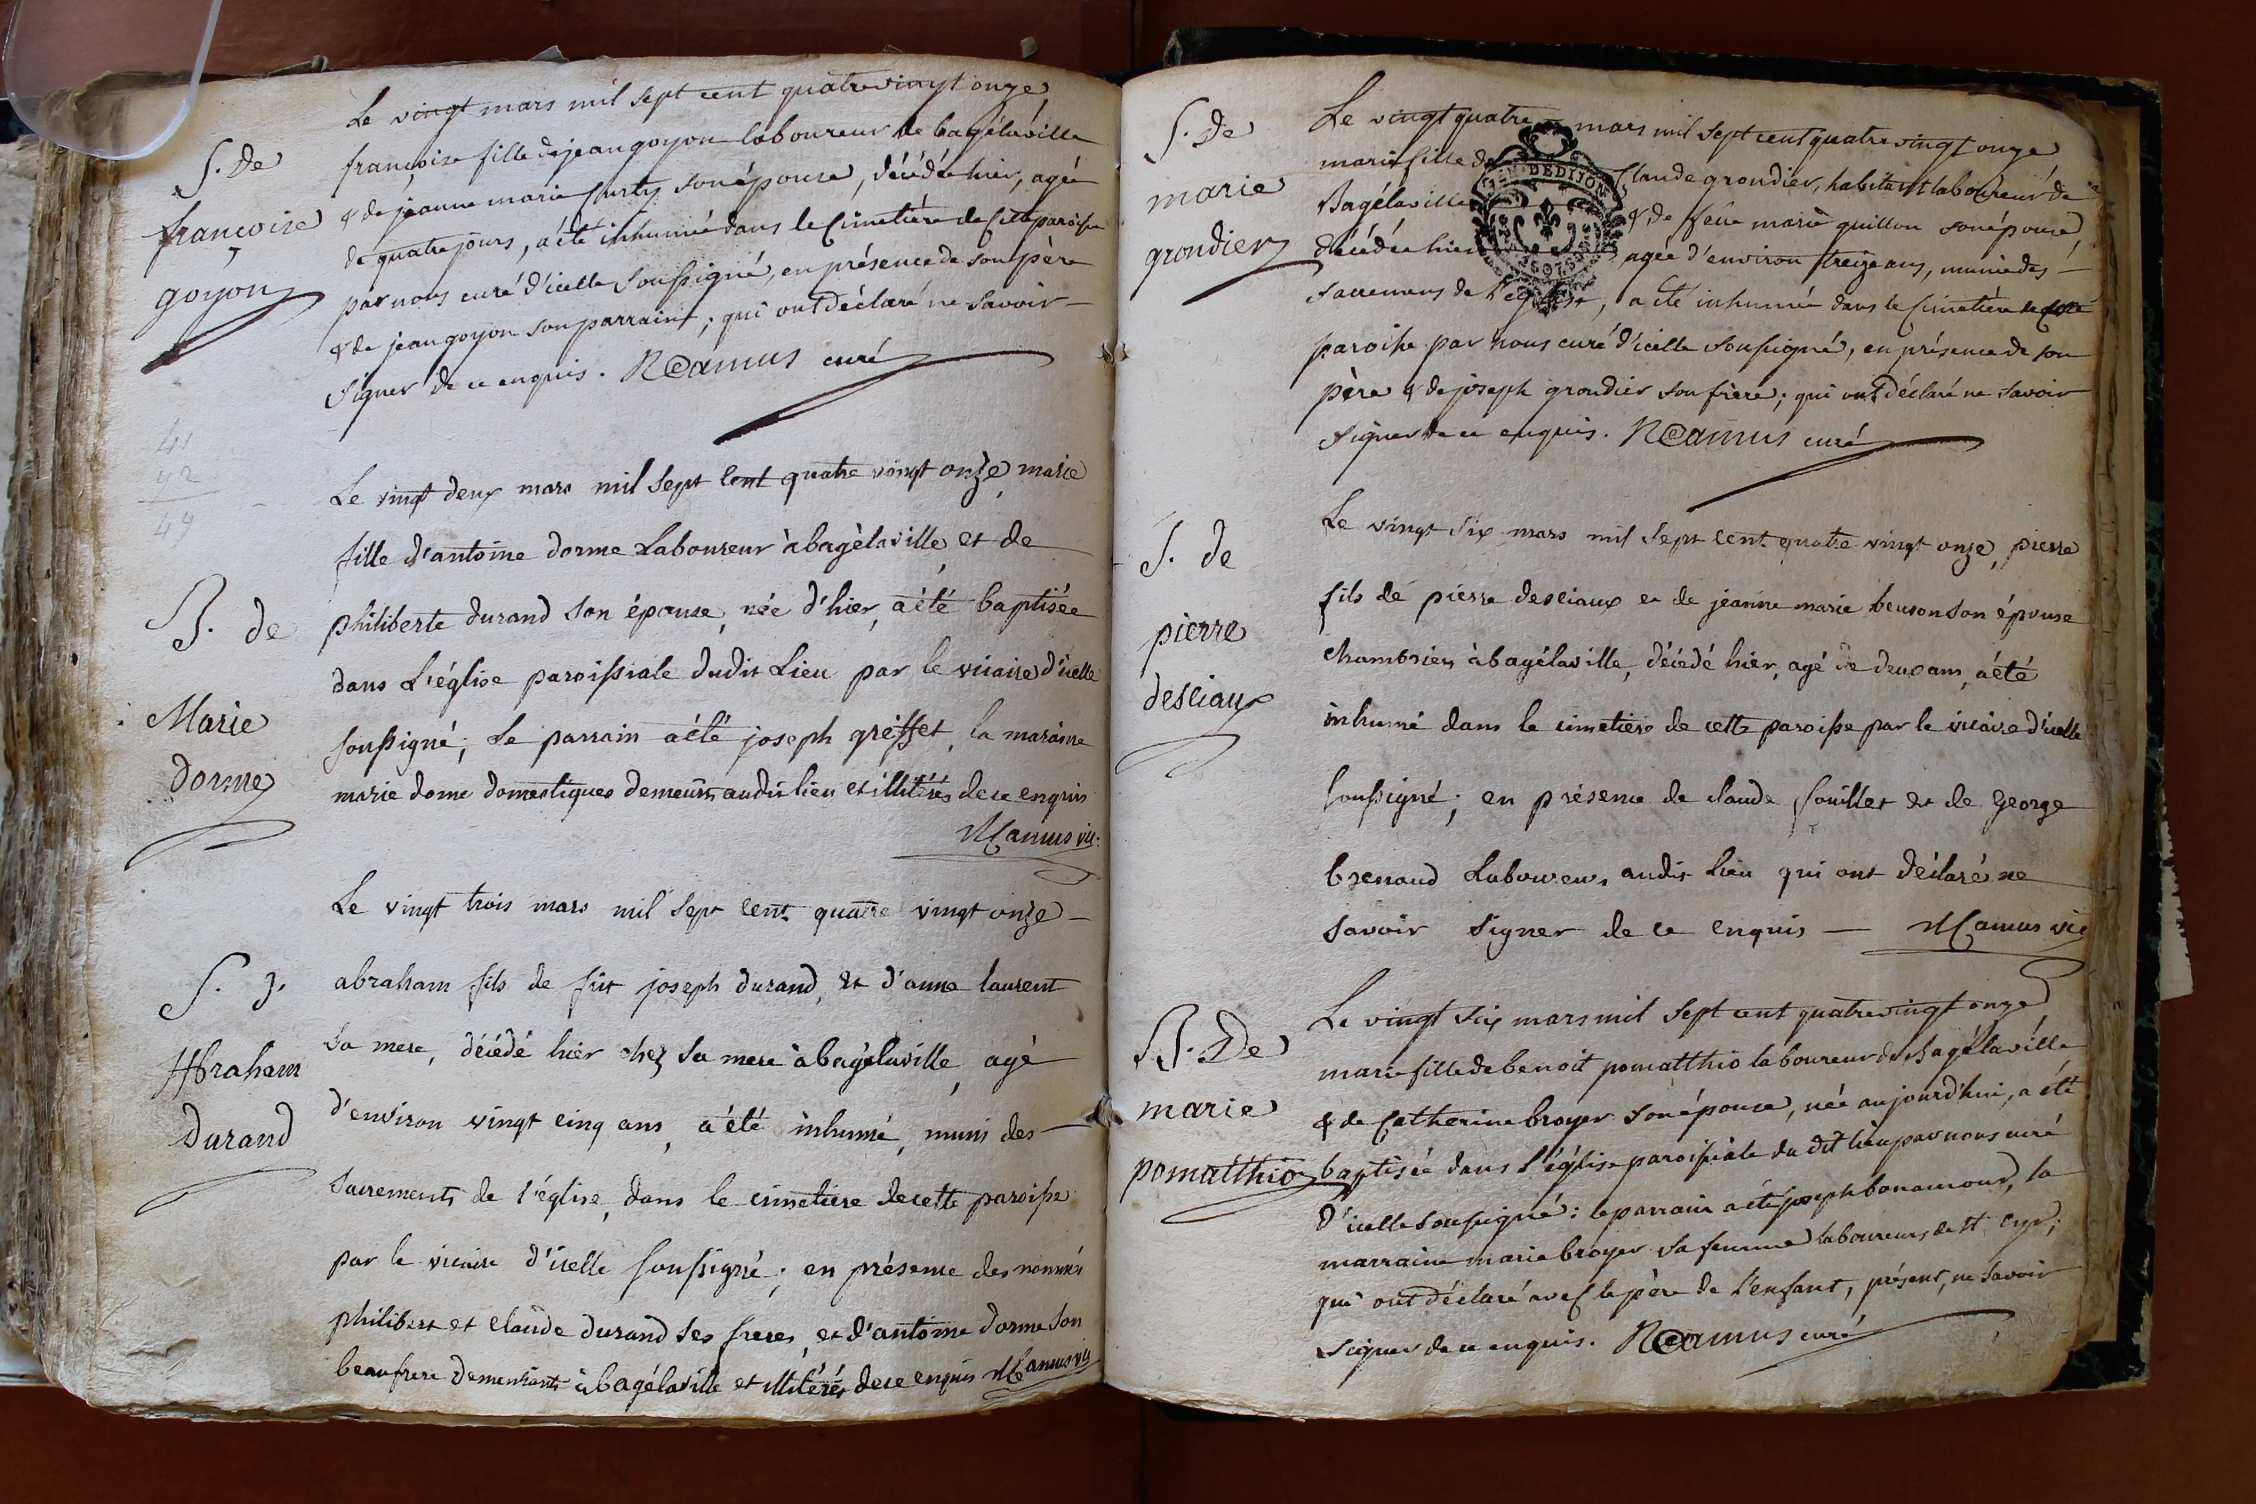 S. De
françoise
goyon
Le vingt mars mil sept cent quatrevingt onze
françoise fille de jean goyon laboureur de bagélaville
& de jeanne marie Curty son épouse, décédée hier, agée
de quatre jours, a été inhumée dans le Cimetière de Cette paroisse
par nous curé d'icelle soussigné, en présence de son père
& de jean goyon son parrain ; qui ont déclaré ne savoir
signer de ce enquis. NCamus curé
41
42
49
B. de
Marie
Dorme
Le vingt deux mars mil sept cent quatre vingt onze, marie
fille d'antoine dorme Laboureur à bagèlaville et de
philiberte durand son épouse, née d'hier, a été baptisée
dans L'église paroissiale dudit Lieu par le vicaire d'icelle
soussigné ; Le parrain a été joseph greffet, la maraine
marie dome domestiques demeurts audit lieu et illitérés de ce enquis
MCamus vic.
S. d.
Abraham
Durand
Le vingt trois mars mil sept cent quatre vingt onze
abraham fils de fût joseph durand, et d'anne laurent
sa mere, décédé hier chez sa mere à bagèlaville, agé
d'environ vingt cinq ans, a été inhumé, muni des
sacrements de l'église, dans le cimetiere de cette paroisse
par le vicaire d'icelle soussigné ; en présence des nommés
philibert et claude durand ses freres, et d'antoine dorme son
beaufrere demeurants à bagélaville et illitérés de ce enquis MCamus vic
S. De
marie
grondier
Le vingt quatre mars mil sept cent quatre vingt onze
marie fille de Claude grondier, habitant laboureur de
Bagélaville & de feüe marie guillon son épouse,
décédée hier, agée d'environ treize ans, munie des
sacremens de l'eglise, a été inhumée dans le Cimetière de Cette
paroisse par nous curé d'icelle soussigné, en présence de son
père & de joseph grondier son frère ; qui ont déclaré ne savoir
signer de ce enquis. NCamus curé
GEN. DE DIJON
S. de
pierre
desciaux
Le vingt six mars mil sept cent quatre vingt onze, pierre
fils de pierre desciaux et de jeanne marie beuson son épouse
chambrier à bagélaville, décédé hier, agé de deux ans, a été
inhumé dans le cimetiere de cette paroisse par le vicaire d'icelle
soussigné ; en présence de claude souillet et de George
brenaud Laboureurs audit Lieu qui ont déclaré ne
savoir signer de ce enquis MCamus vic
B. De
marie
pomatthio
Le vingt six mars mil sept cent quatrevingt onze
marie fille de benoit pomatthio laboureur de Bagélaville
& de Catherine broyer son épouse, née aujourd'hui, a été
baptisée dans l'église paroissiale du dit lieu par nous curé
d'icelle soussigné : le parrain a été joseph bonamour, la
marraine marie broyer sa femme laboureurs de St Cyr ;
qui ont déclaré avec le père de l'enfant, présent, ne savoir
signer de ce enquis. NCamus curé